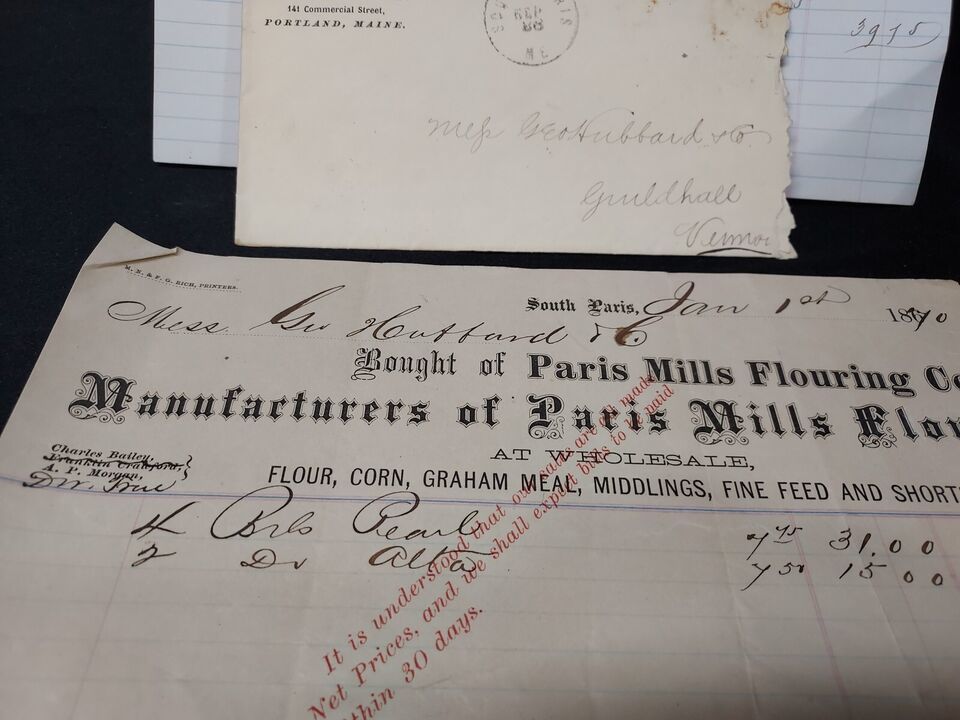 141 Commercial Street,
PORTLAND, MAINE.
ME
3975
Mess Geo Hubbard & Co.
Guildhall
Vermo
M. N. & F. G. RICH, PRINTERS.
South Paris, Jan 1st 1870
Mess. Geo Hubbard & Co
Bought of Paris Mills Flouring Co
Manufacturers of Paris Mills Flou
AT WHOLESALE,
Charles Bailey,
Franklin Crawford,
A. P. Morgan,
FLOUR, CORN, GRAHAM MEAL, MIDDLINGS, FINE FEED AND SHORT
4 Brls Pearl 7 75 31.00
2 Do Alta 7 50 15 00
It is understood that our sales are all made
Net Prices, and we shall expect bills to be paid
thin 30 days.